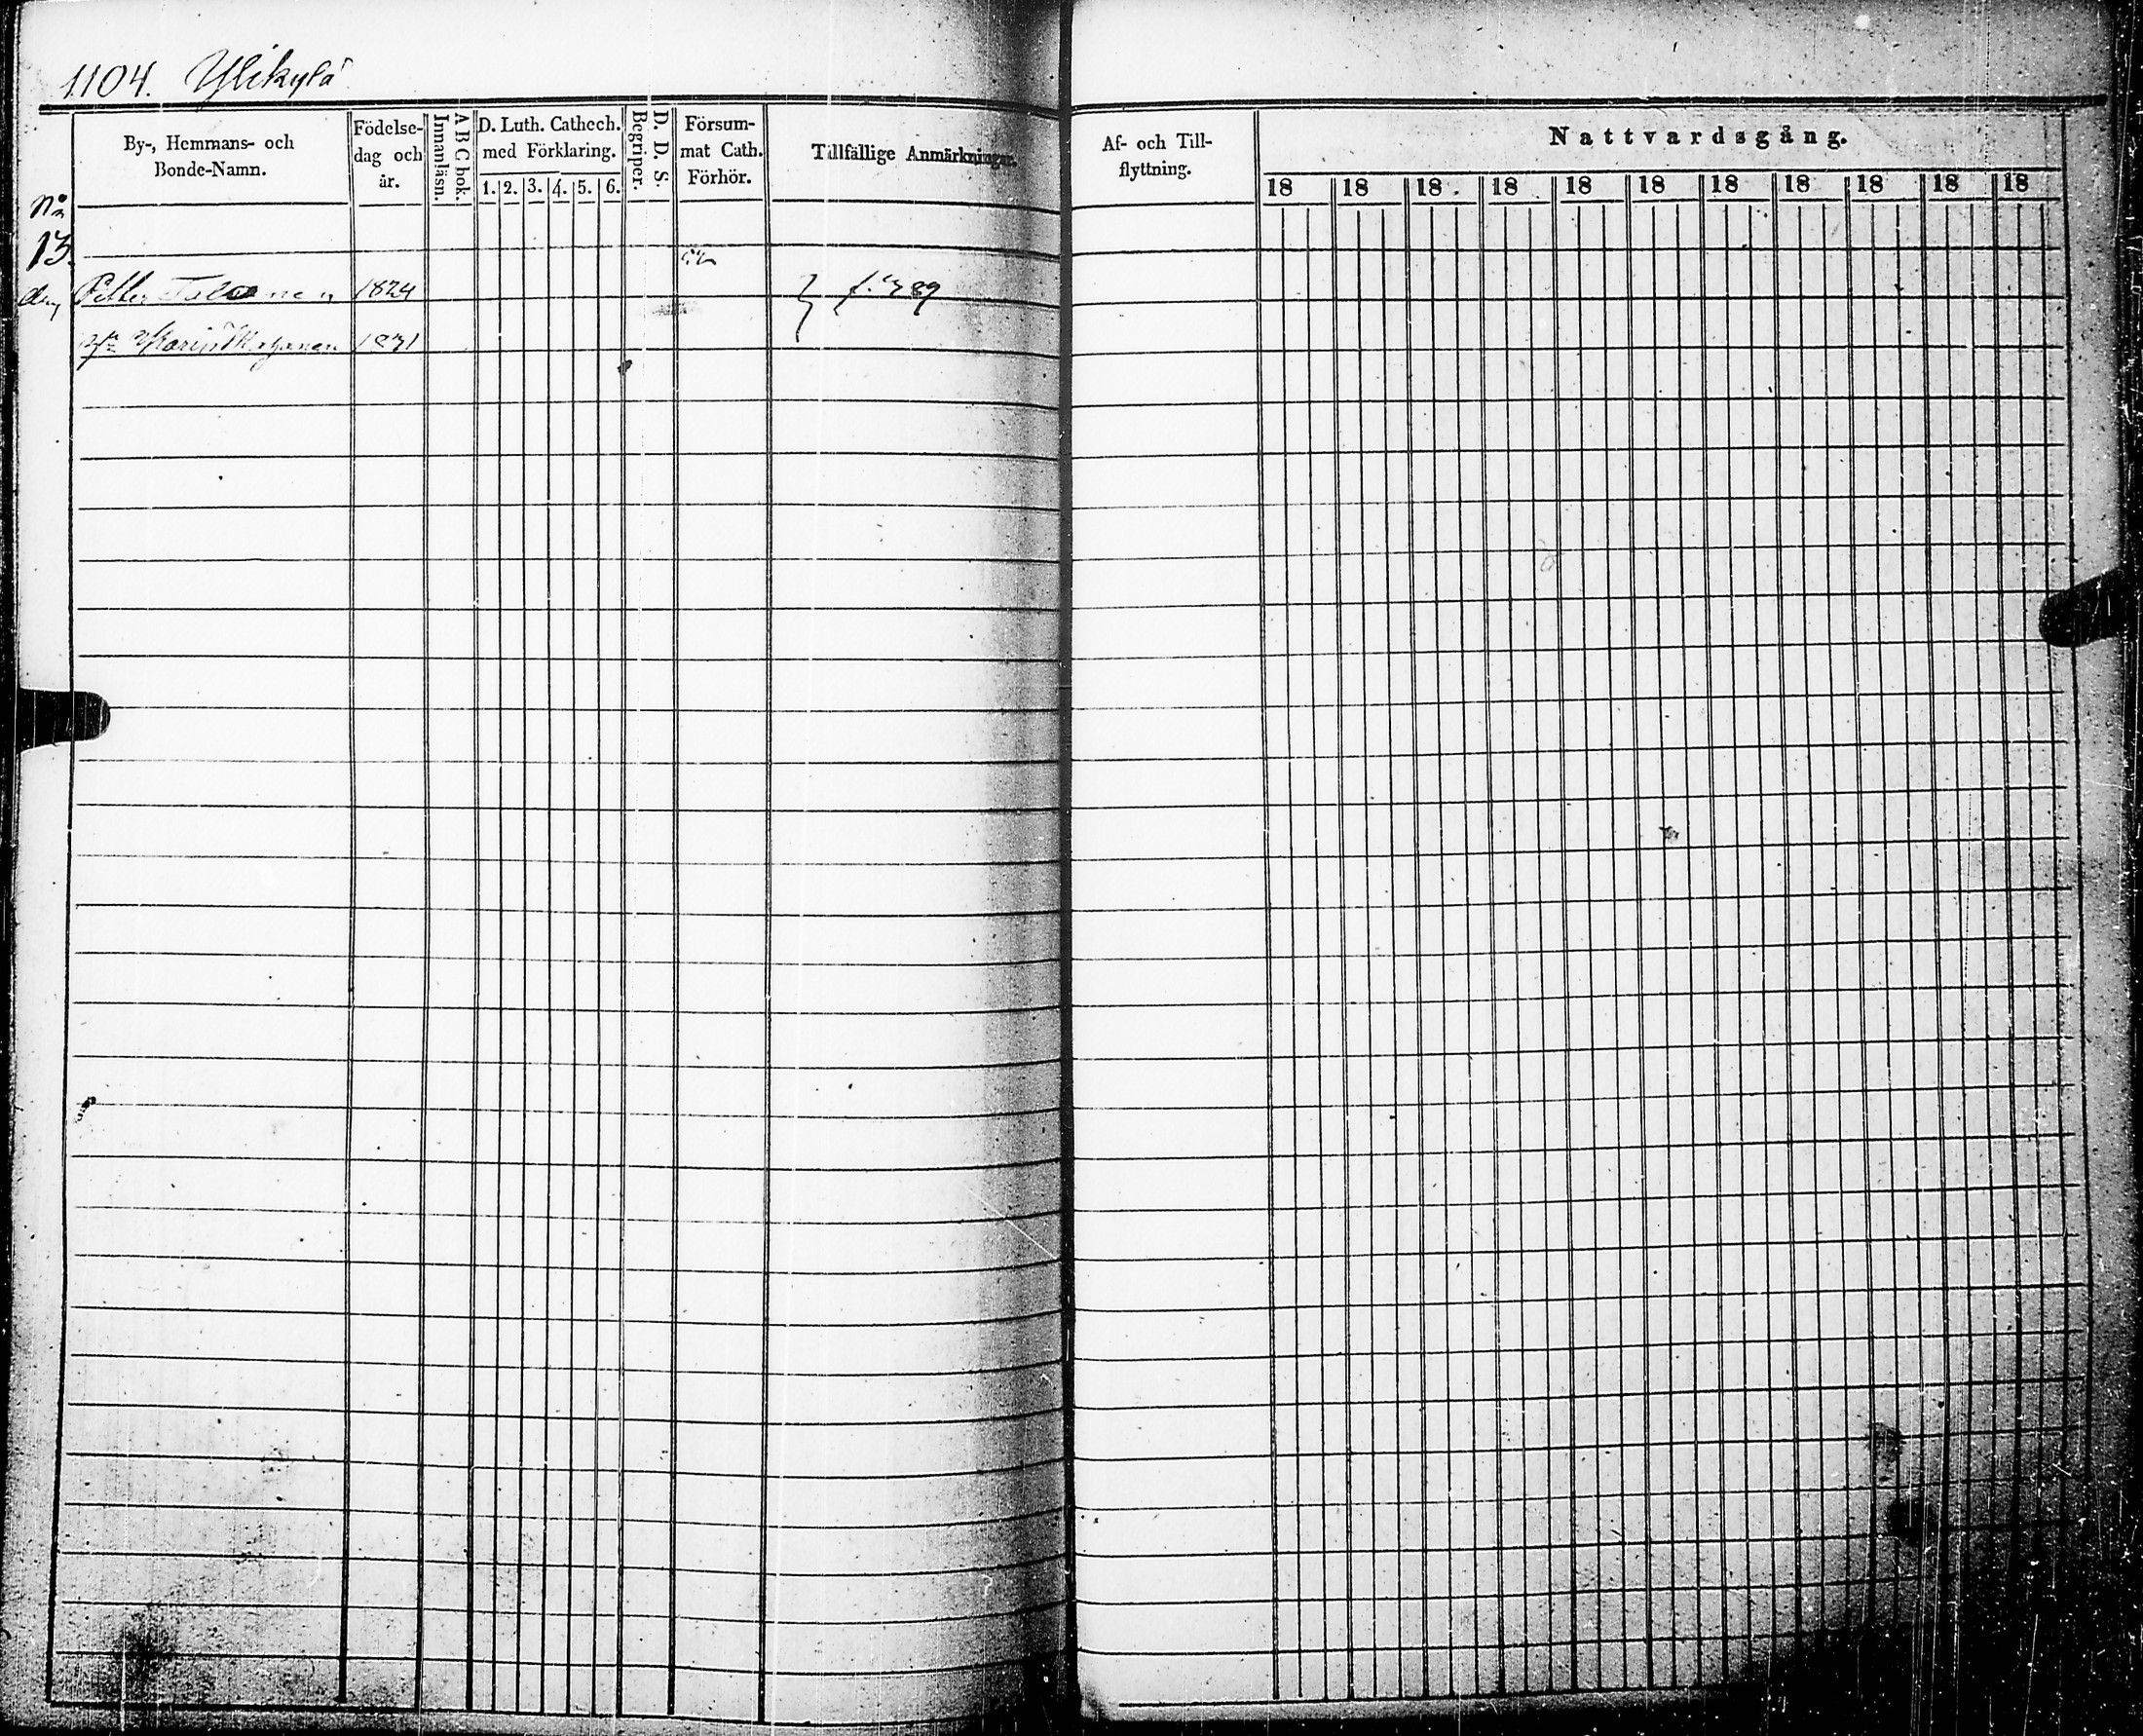 1104. Ylikylä
By-, Hemmans- och Bonde-Namn.
Födelse-dag och år.
Innanläsn.
A B C bok.
D. Luth. Cathech. med Förklaring.
1. 2. 3. 4. 5. 6.
Begriper.
D. D. S.
Försum-mat Cath. Förhör.
Tillfällige Anmärkningar.
Af- och Till-flyttning.
Nattvardsgång.
18 18 18 18 18 18 18 18 18 18 18
No
13
Petter 1824
Karin 1831